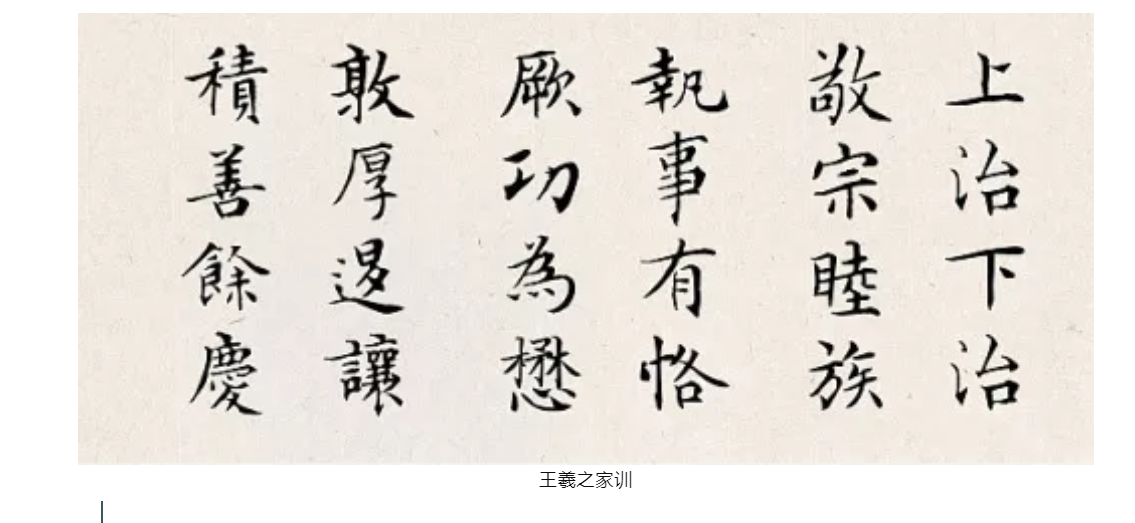 上治下治
敬宗睦族
執事有恪
厥功為懋
敦厚退讓
積善餘慶
王羲之家训